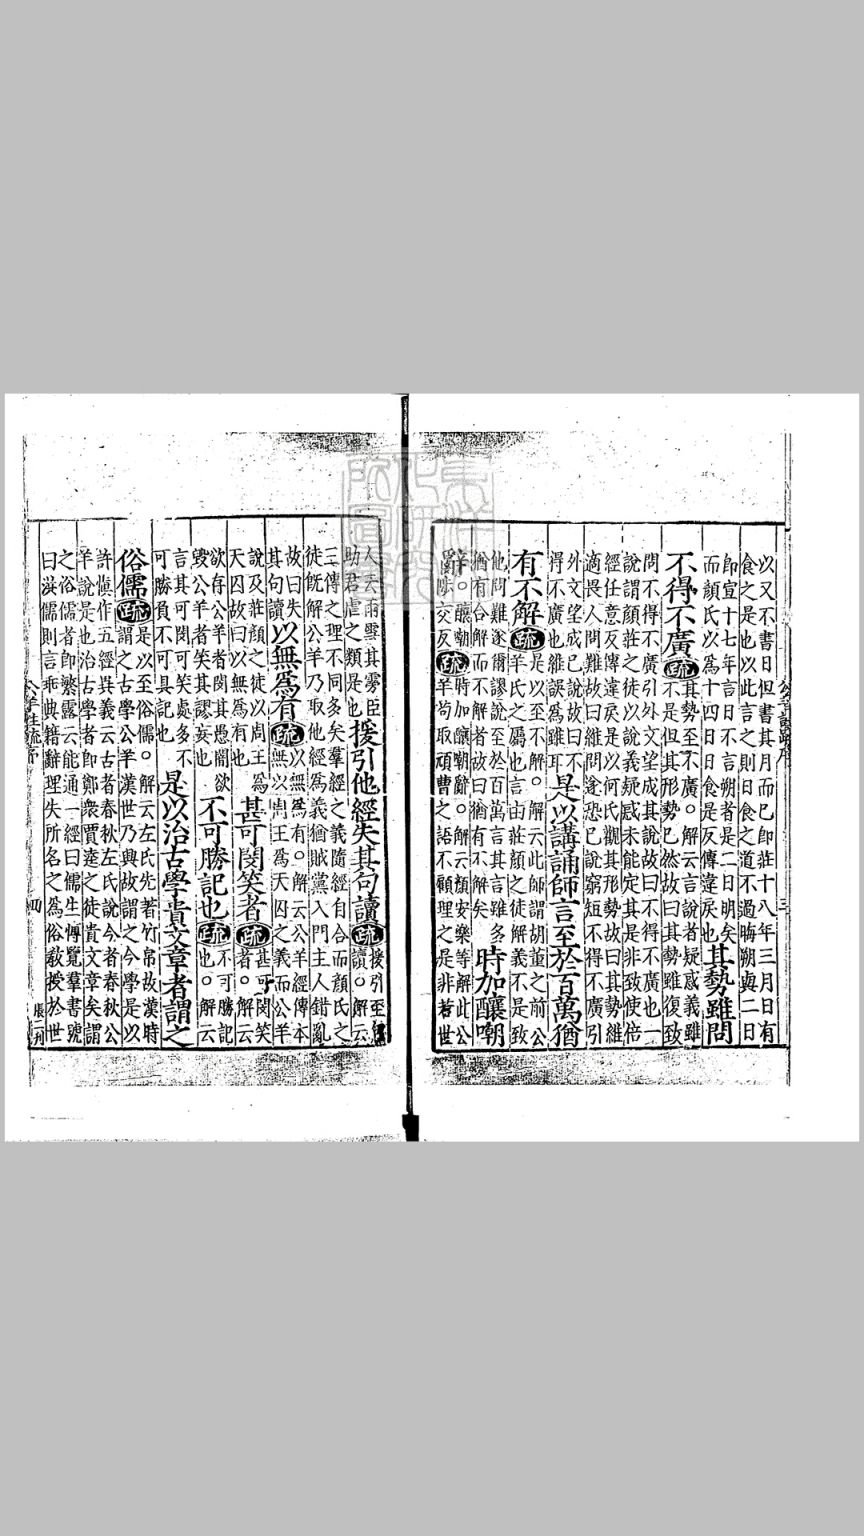 以又不書日但書其月而已即莊十八年三月日有
食之是也以此言之則日食之道不過晦朔與二日
即宣十七年言日不言朔者是二日明矣
而顏氏以爲十四日日食是反傳違戾也
其勢雖問
不得不廣
疏
其勢至不廣。解云言說者疑惑義雖
不是但其形勢已然故曰其勢雖復致
問不得不廣引外文望成其說故曰不得不廣也一
說謂顏莊之徒以說義疑惑未能定其是非致使倍
經任意反傳違戾是以何氏觀其形勢故曰其勢維
適畏人問難故曰維問遂恐己說窮短不得不廣引
外文望成己說故曰不
得不廣也維誤爲雖耳
是以講誦師言至於百萬猶
有不解
疏
是以至不解。解云此師謂胡董之前公
羊氏之屬也言由莊顏之徒解義不是致
他問難遂爾謬說至於百萬言其言雖多
猶有合解而不解者故曰猶有不解矣
時加釀嘲
辭
疏
時加釀嘲辭。解云顏安樂等解此公
羊苟取頑曹之語不顧理之是非若世
人云雨雪其雱臣
助君虐之類是也
援引他經失其句讀
疏
援引至句
讀。解云
三傳之理不同多矣羣經之義隨經自合而顏氏之
徒旣解公羊乃取他經爲義猶賊黨入門主人錯亂
故曰失
其句讀
以無爲有
疏
以無爲有。解云公羊經傳本
無以周王爲天囚之義而公羊
說及莊顏之徒以周王爲
天囚故曰以無爲有也
甚可閔笑者
疏
甚可閔笑
者。解云
欲存公羊者閔其愚闇欲
毀公羊者笑其謬妄也
不可勝記也
疏
不可勝記
也。解云
言其可閔可笑處多不
可勝負不可具記也
是以治古學貴文章者謂之
俗儒
疏
是以至俗儒。解云左氏先著竹帛故漢時
謂之古學公羊漢世乃興故謂之今學是以
許愼作五經異義云古者春秋左氏說今者春秋公
羊說是也治古學者即鄭衆賈逵之徒貴文章矣謂
之俗儒者即繁露云能通一經曰儒生博覽羣書號
曰洪儒則言乖典籍辭理失所名之爲俗敎授於世
四